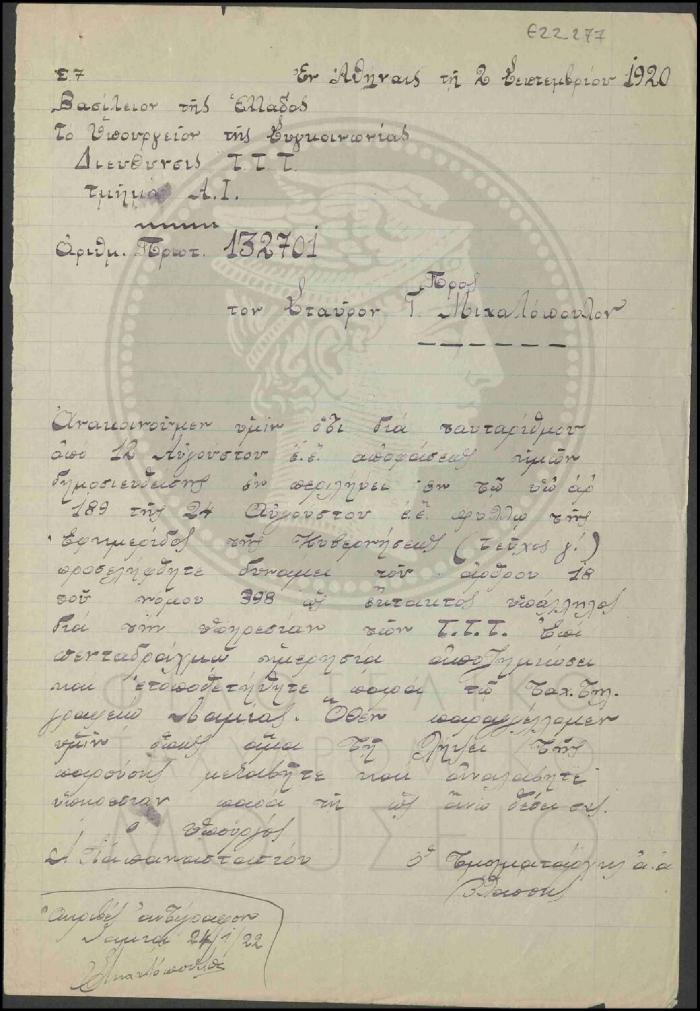 Ε22.277
Σ7 Ἐν Ἀθήναις τῇ 2 Σεπτεμβρίου 1920
Βασίλειον τῆς Ἑλλάδος
Τὸ Ὑπουργεῖον τῆς Συγκοινωνίας
Διεύθυνσις Τ.Τ.Τ.
Τμῆμα Α.Ι.
Ἀριθμ. Πρωτ. 132701
Πρὸς
τὸν Σταῦρον Γ. Μιχαλόπουλον
Ἀνακοινοῦμεν ὑμῖν ὅτι διὰ ταυταρίθμου
ἀπὸ 12 Αὐγούστου ἐ.ἔ. ἀποφάσεως ἡμῶν
δημοσιευθείσης ἐν περιλήψει ἐν τῷ ὑπ' ἀρ
189 τῆς 24 Αὐγούστου ἐ.ἔ. φύλλῳ τῆς
Ἐφημερίδος τῆς Κυβερνήσεως (τεῦχος γ!)
προσελήφθητε δυνάμει τοῦ ἄρθρου 18
τοῦ νόμου 398 ὡς ἔκτακτος ὑπάλληλος
διὰ τὴν ὑπηρεσίαν τῶν Τ.Τ.Τ. ἐπὶ
πενταδράχμῳ ἡμερησίᾳ ἀποζημιώσει
καὶ ἐτοποθετήθητε παρὰ τῷ Ταχ. Τηλ.
γραφείῳ Λαμίας. Ὅθεν παραγγέλλομεν
ὑμῖν ὅπως ἅμα τῇ λήψει τῆς
παρούσης μεταβῆτε καὶ ἀναλάβητε
ὑπηρεσίαν παρὰ τῇ ὡς ἄνω θέσει σας.
ὁ Ὑπουργὸς
Α Παπαναστασίου Ὁ Τμηματάρχης α.α
Ἀκριβὲς ἀντίγραφον
Λαμία 24/1/22
ΦΙΛΟΤΕΛΙΚΟ
ΤΑΧΥΔΡΟΜΙΚΟ
ΜΟΥΣΕΙΟ